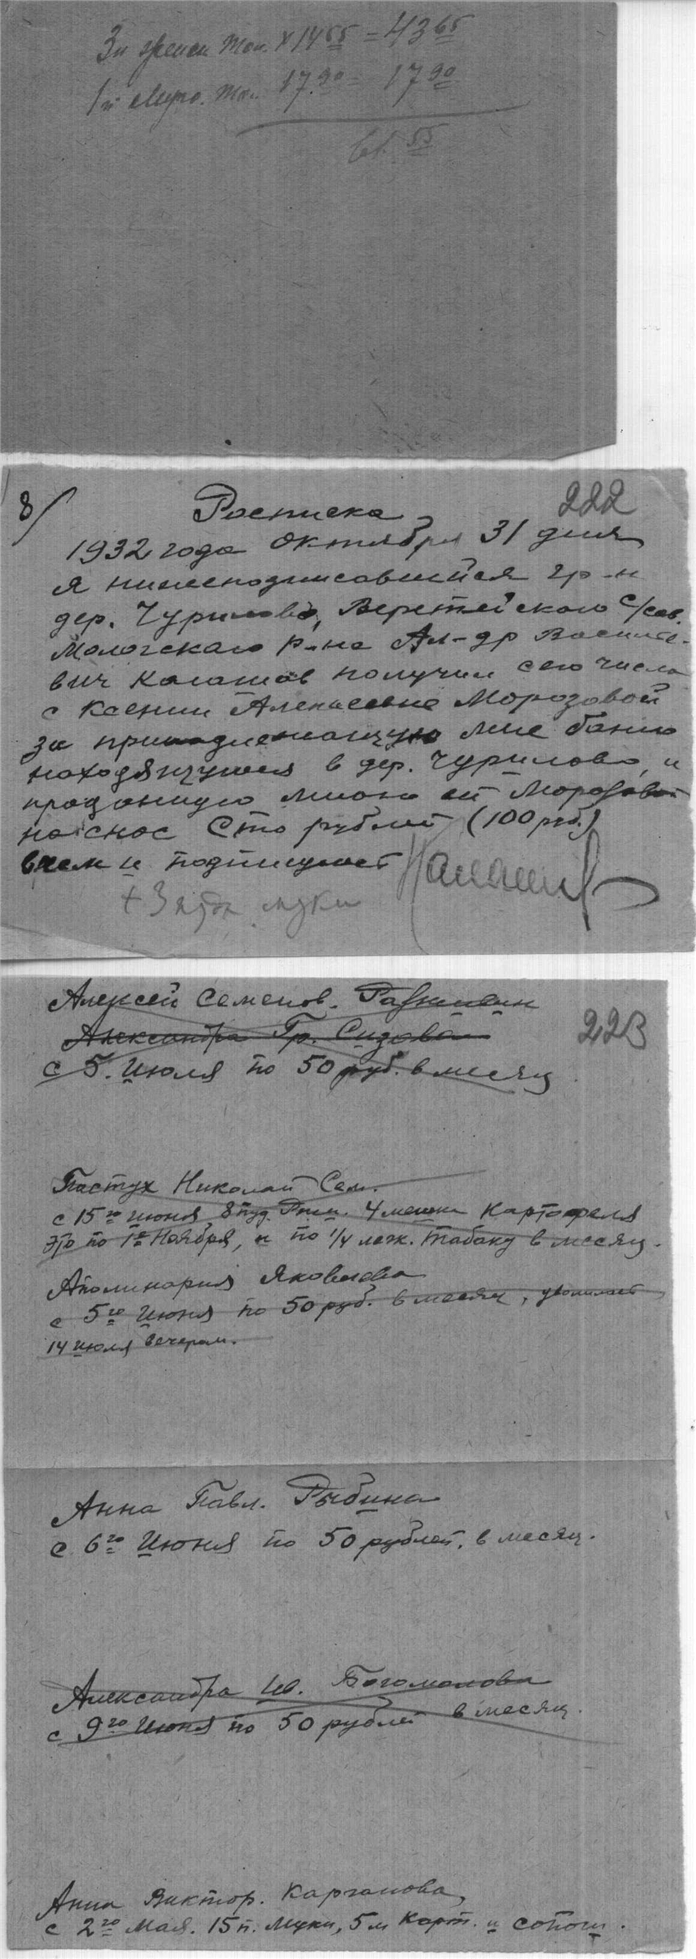 3 х 14 55 = 43 65
17 90 = 17 90
61. 55
8/
222
Росписка
1932 года Октября 31 дня
я нижеподписавшийся гр-н
дер. Чурилово, Веретейского с/сов.
Мологского р-на Ал-др Василье-
вич Калашов получил сего числа
с Ксении Алексеевне Морозовой
за принадлежащую мне баню
находящуюся в дер. Чурилово, и
проданную мною ей Морозовой
на снос Сто рублей (100 руб.)
в чем и подпишусь
+ 3 пуда муки
223
Алексей Семенов.
Александра Гр. Сизова
с 5. Июля по 50 руб. в месяц
Пастух Николай Сем.
с 15го июня, 8 пуд. 4 мешка картофеля
это по 1е Ноября, и по 1/4 табаку в месяц.
Аполинария Яковлева
с 5го Июня по 50 руб. в месяц,
14 июля вечером.
Анна Павл. Рыбина
с 6го Июня по 50 рублей. в месяц.
Александра Ив. Богомолова
с 9го Июня по 50 рублей в месяц.
Анна Виктор. Карганова,
с 2го Мая. 15 п. Муки, 5 м Карт. и